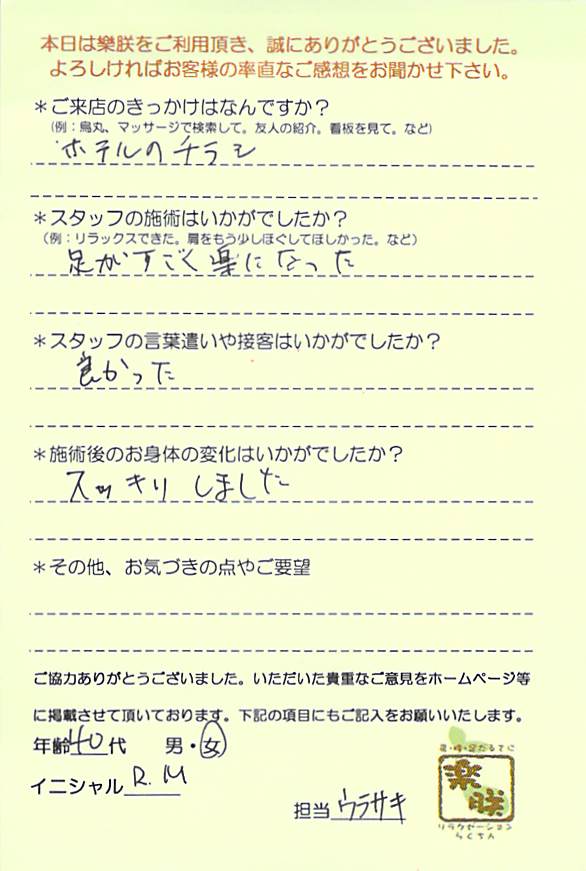 本日は樂朕をご利用頂き、誠にありがとうございました。
よろしければお客様の率直なご感想をお聞かせ下さい。
＊ご来店のきっかけはなんですか？
（例：烏丸、マッサージで検索して。友人の紹介。看板を見て。など）
ホテルのチラシ
＊スタッフの施術はいかがでしたか？
（例：リラックスできた。肩をもう少しほぐしてほしかった。など）
足がすごく楽になった
＊スタッフの言葉遣いや接客はいかがでしたか？
良かった
＊施術後のお身体の変化はいかがでしたか？
スッキリしました
＊その他、お気づきの点やご要望
ご協力ありがとうございました。いただいた貴重なご意見をホームページ等
に掲載させて頂いております。下記の項目にもご記入をお願いいたします。
年齢40代 男・女
イニシャル R.M
担当 ウラサキ
楽朕
リラクゼーション
らくちん